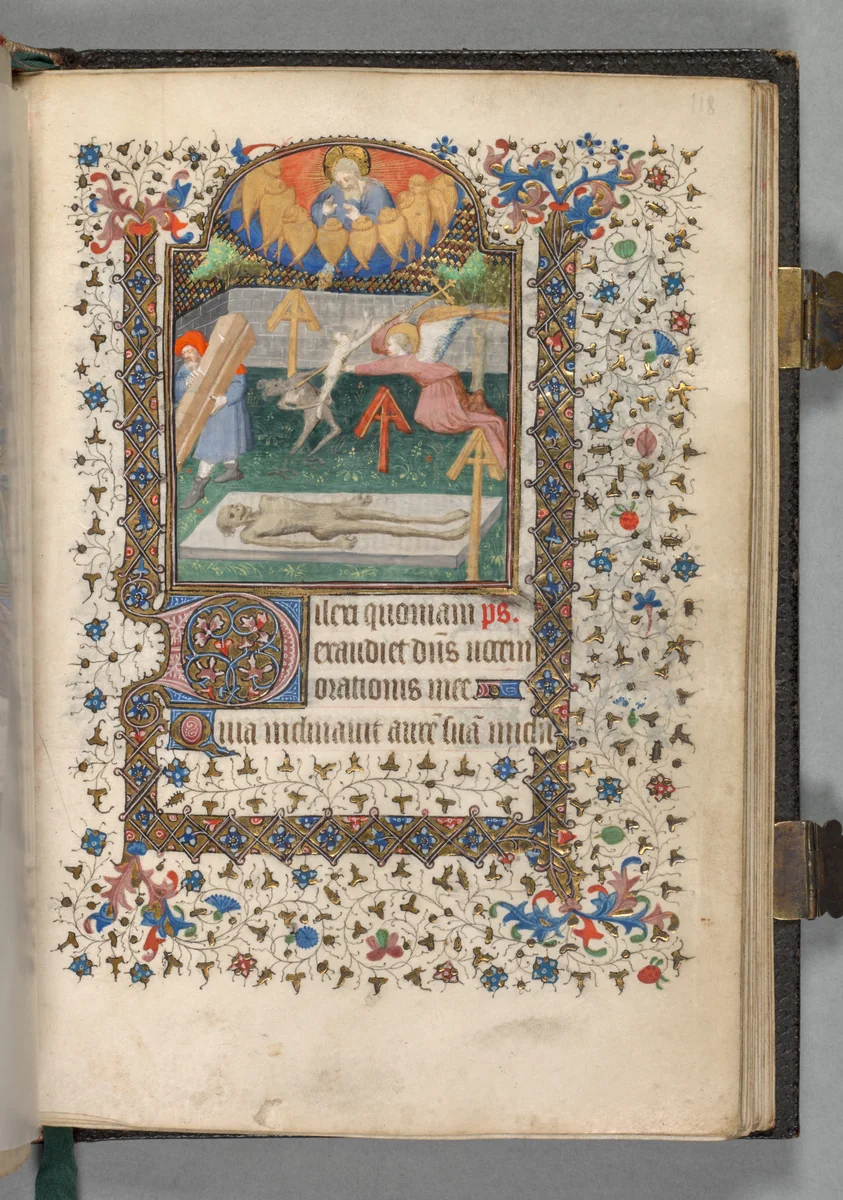 118
Dilexi quoniam ps.
exaudiet dn̄s uocem
orationis mee.
Quia inclinauit aurē suā michi